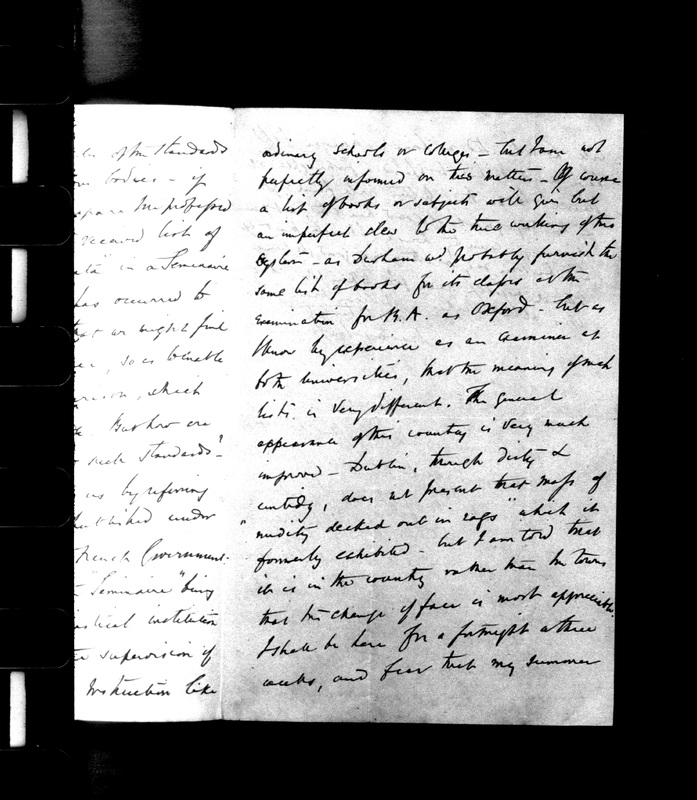 of the standards
bodies - if
the professed
list of
in a Seminaire
has occurred to
we might find
so as to enable
which
But how are
such standards"
as by referring
under
French Government.
"Seminaire" being
institution
supervision of
Instruction like
ordinary schools or colleges - but I am not
perfectly informed on this matter - Of course
a list of books or subjects will give but
an imperfect clew to the true working of this
system - as Durham wd. probably furnish the
same list of books for its classes at the
examination for B.A. as Oxford - but as
I know by experience as an examiner at
both Universities, that the meaning of such
lists is very different. The general
appearance of this country is very much
improved - Dublin, though dirty &
untidy, does not present that mass of
"nudity decked out in rags" which it
formerly exhibited - but I am told that
it is in the country rather than the towns
that the change of face is most appreciable.
I shall be here for a fortnight or three
weeks, and fear that my summer